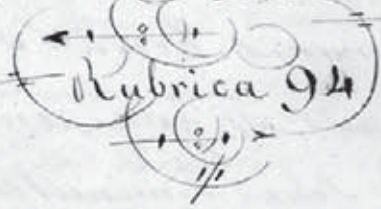 Rubrica 94